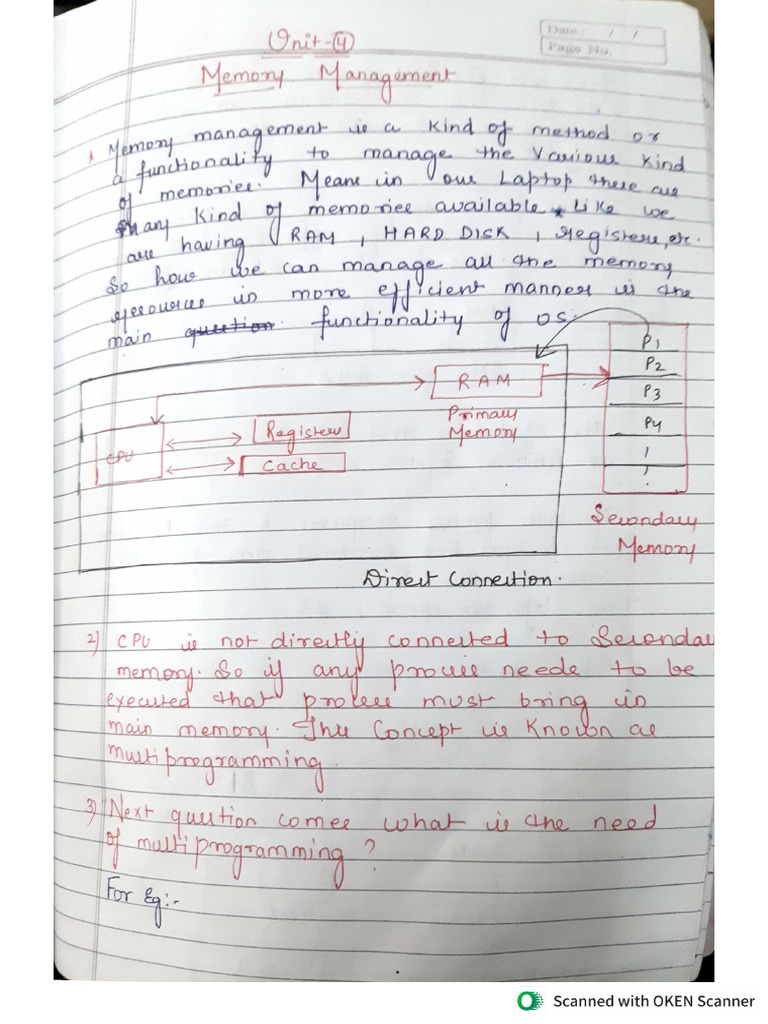 Date : / /
Page No.
Unit-4
Memory Management
1 Memory management is a kind of method or
a functionality to manage the various kind
of memories. Means in our Laptop there are
many kind of memories available. Like we
are having RAM, HARD DISK, registers, etc.
So how we can manage all the memory
resources in more efficient manner is the
main question functionality of OS.
P1
P2
RAM
P3
Primary
Memory
P4
Registers
CPU
Cache
Secondary
Memory
Direct Connection.
2) CPU is not directly connected to Secondary
memory. So if any process needs to be
executed that process must bring in
main memory. This Concept is Known as
multiprogramming.
3) Next question comes what is the need
of multiprogramming?
For Eg:-
Scanned with OKEN Scanner